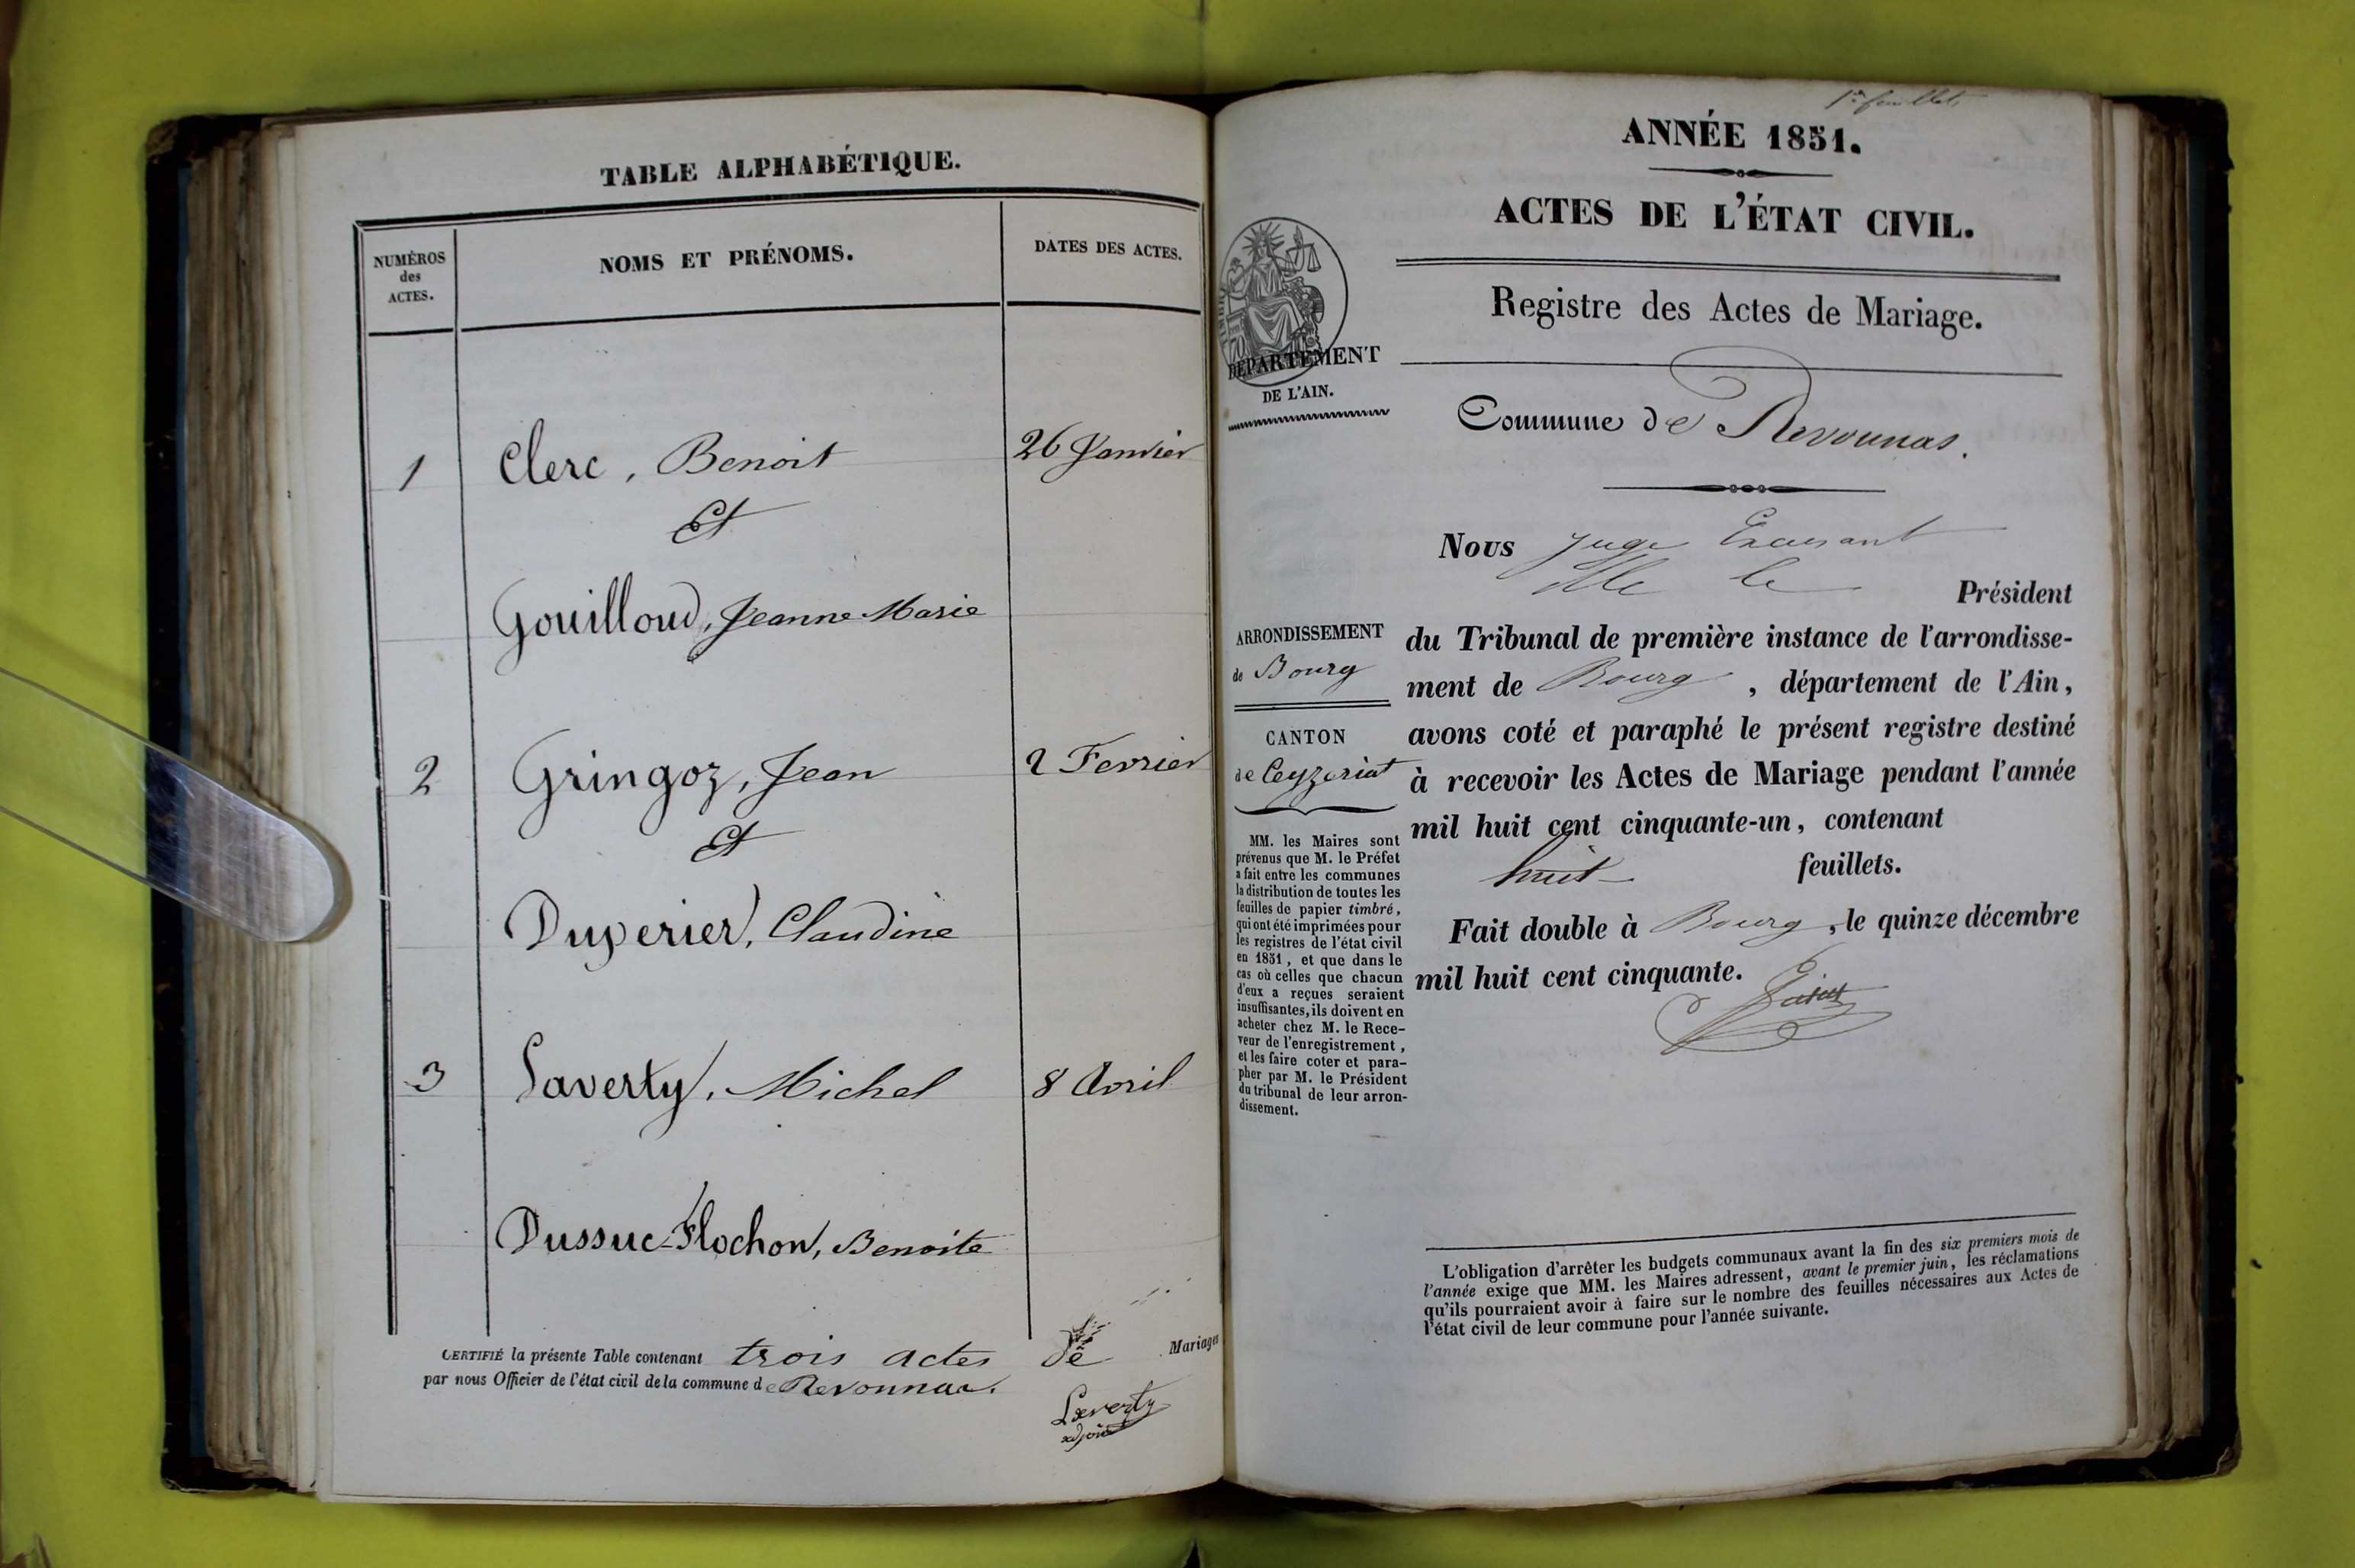 TABLE ALPHABÉTIQUE.
NUMÉROS
des
ACTES.
NOMS ET PRÉNOMS.
DATES DES ACTES.
1 Clerc, Benoit 26 Janvier
Et
Gouilloud, Jeanne Marie
2 Gringoz, Jean 2 Fevrier
Et
Duperier, Claudine
3 Laverty, Michel 8 Avril
Dussuc-Flochon, Benoite
CERTIFIÉ la présente Table contenant trois actes de Mariages
par nous Officier de l'état civil de la commune de Revonnas.
Laverty
adjoint
1er feuillet
ANNÉE 1851.
ACTES DE L'ÉTAT CIVIL.
Registre des Actes de Mariage.
DÉPARTEMENT
DE L'AIN.
Commune de Revonnas.
Nous Juge
le
Président
du Tribunal de première instance de l'arrondisse-
ment de Bourg, département de l'Ain,
avons coté et paraphé le présent registre destiné
à recevoir les Actes de Mariage pendant l'année
mil huit cent cinquante-un, contenant
huit feuillets.
Fait double à Bourg, le quinze décembre
mil huit cent cinquante.
ARRONDISSEMENT
de Bourg
CANTON
de Ceyzeriat
MM. les Maires sont
prévenus que M. le Préfet
a fait entre les communes
la distribution de toutes les
feuilles de papier timbré,
qui ont été imprimées pour
les registres de l'état civil
en 1851, et que dans le
cas où celles que chacun
d'eux a reçues seraient
insuffisantes, ils doivent en
acheter chez M. le Rece-
veur de l'enregistrement,
et les faire coter et para-
pher par M. le Président
du tribunal de leur arron-
dissement.
L'obligation d'arrêter les budgets communaux avant la fin des six premiers mois de
l'année exige que MM. les Maires adressent, avant le premier juin, les réclamations
qu'ils pourraient avoir à faire sur le nombre des feuilles nécessaires aux Actes de
l'état civil de leur commune pour l'année suivante.